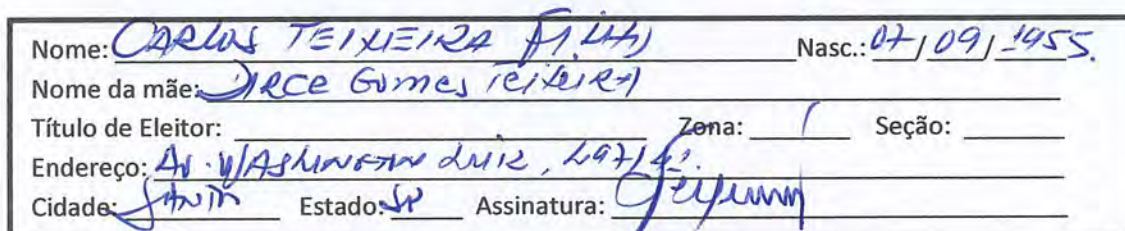 Nome: CARLOS TEIXEIRA FILHO Nasc.: 07/09/1955.
Nome da mãe: DIRCE GOMES TEIXEIRA
Título de Eleitor: Zona: Seção:
Endereço: AV. WASHINGTON LUIZ,
Cidade: Estado: SP Assinatura: